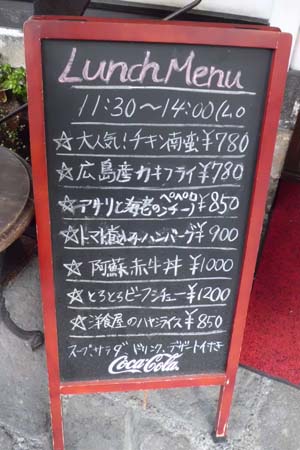 Lunch Menu
11:30〜14:00 (L.O
☆大人気!チキン南蛮¥780
☆広島産カキフライ¥780
☆アサリと海老のペペロンチーノ¥850
☆トマト煮込みハンバーグ¥900
☆阿蘇赤牛丼¥1000
☆とろとろビーフシチュー¥1200
☆洋食屋のハヤシライス¥850
スープ、サラダ、ドリンク、デザート付き
Coca-Cola